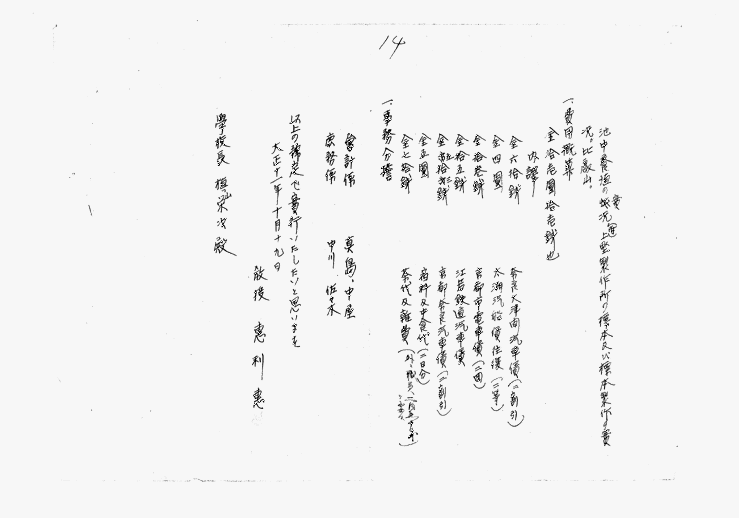 14
池中養殖の實況(通)上野製作所の標本及び標本製作の實
況。比叡山。
一、費用概算
金 拾壱圓拾壱銭也
内譯
金 六拾銭 奈良大津間汽車賃(二割引)
金 四圓 太湖汽船賃往復(二等)
金 拾参銭 京都市電車賃(二回)
金 拾五銭 江若鉄道汽車賃
金 拾銭 京都奈良汽車賃(二割引)
金 五圓 宿料及中食代(二日分)
金 七拾銭 茶代及雑費
一、事務分擔
會計係 真島、中屋
庶務係 中川 佐々木
以上の豫定で實行いたしたいと思います
大正十一年十月十九日
敵後 恵利恵
學校長 槇山栄次殿